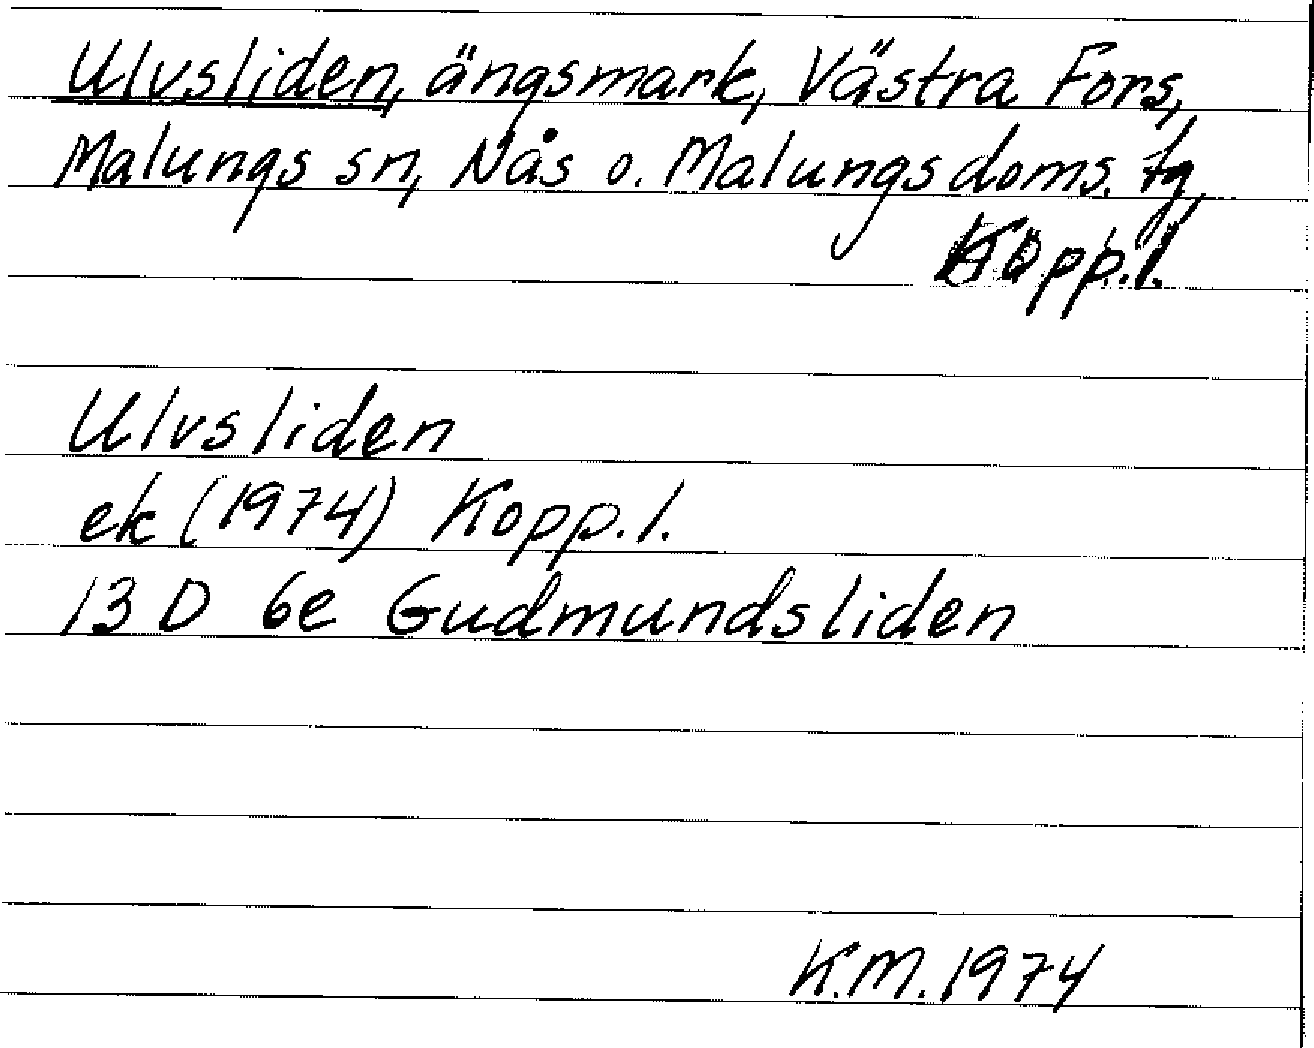 Ulvsliden, ängsmark, Västra Fors,
Malungs sn, Nås o. Malungs doms. tg,
Kopp.l.
Ulvsliden
ek (1974) Kopp.l.
13 D 6e Gudmundsliden
K.M. 1974